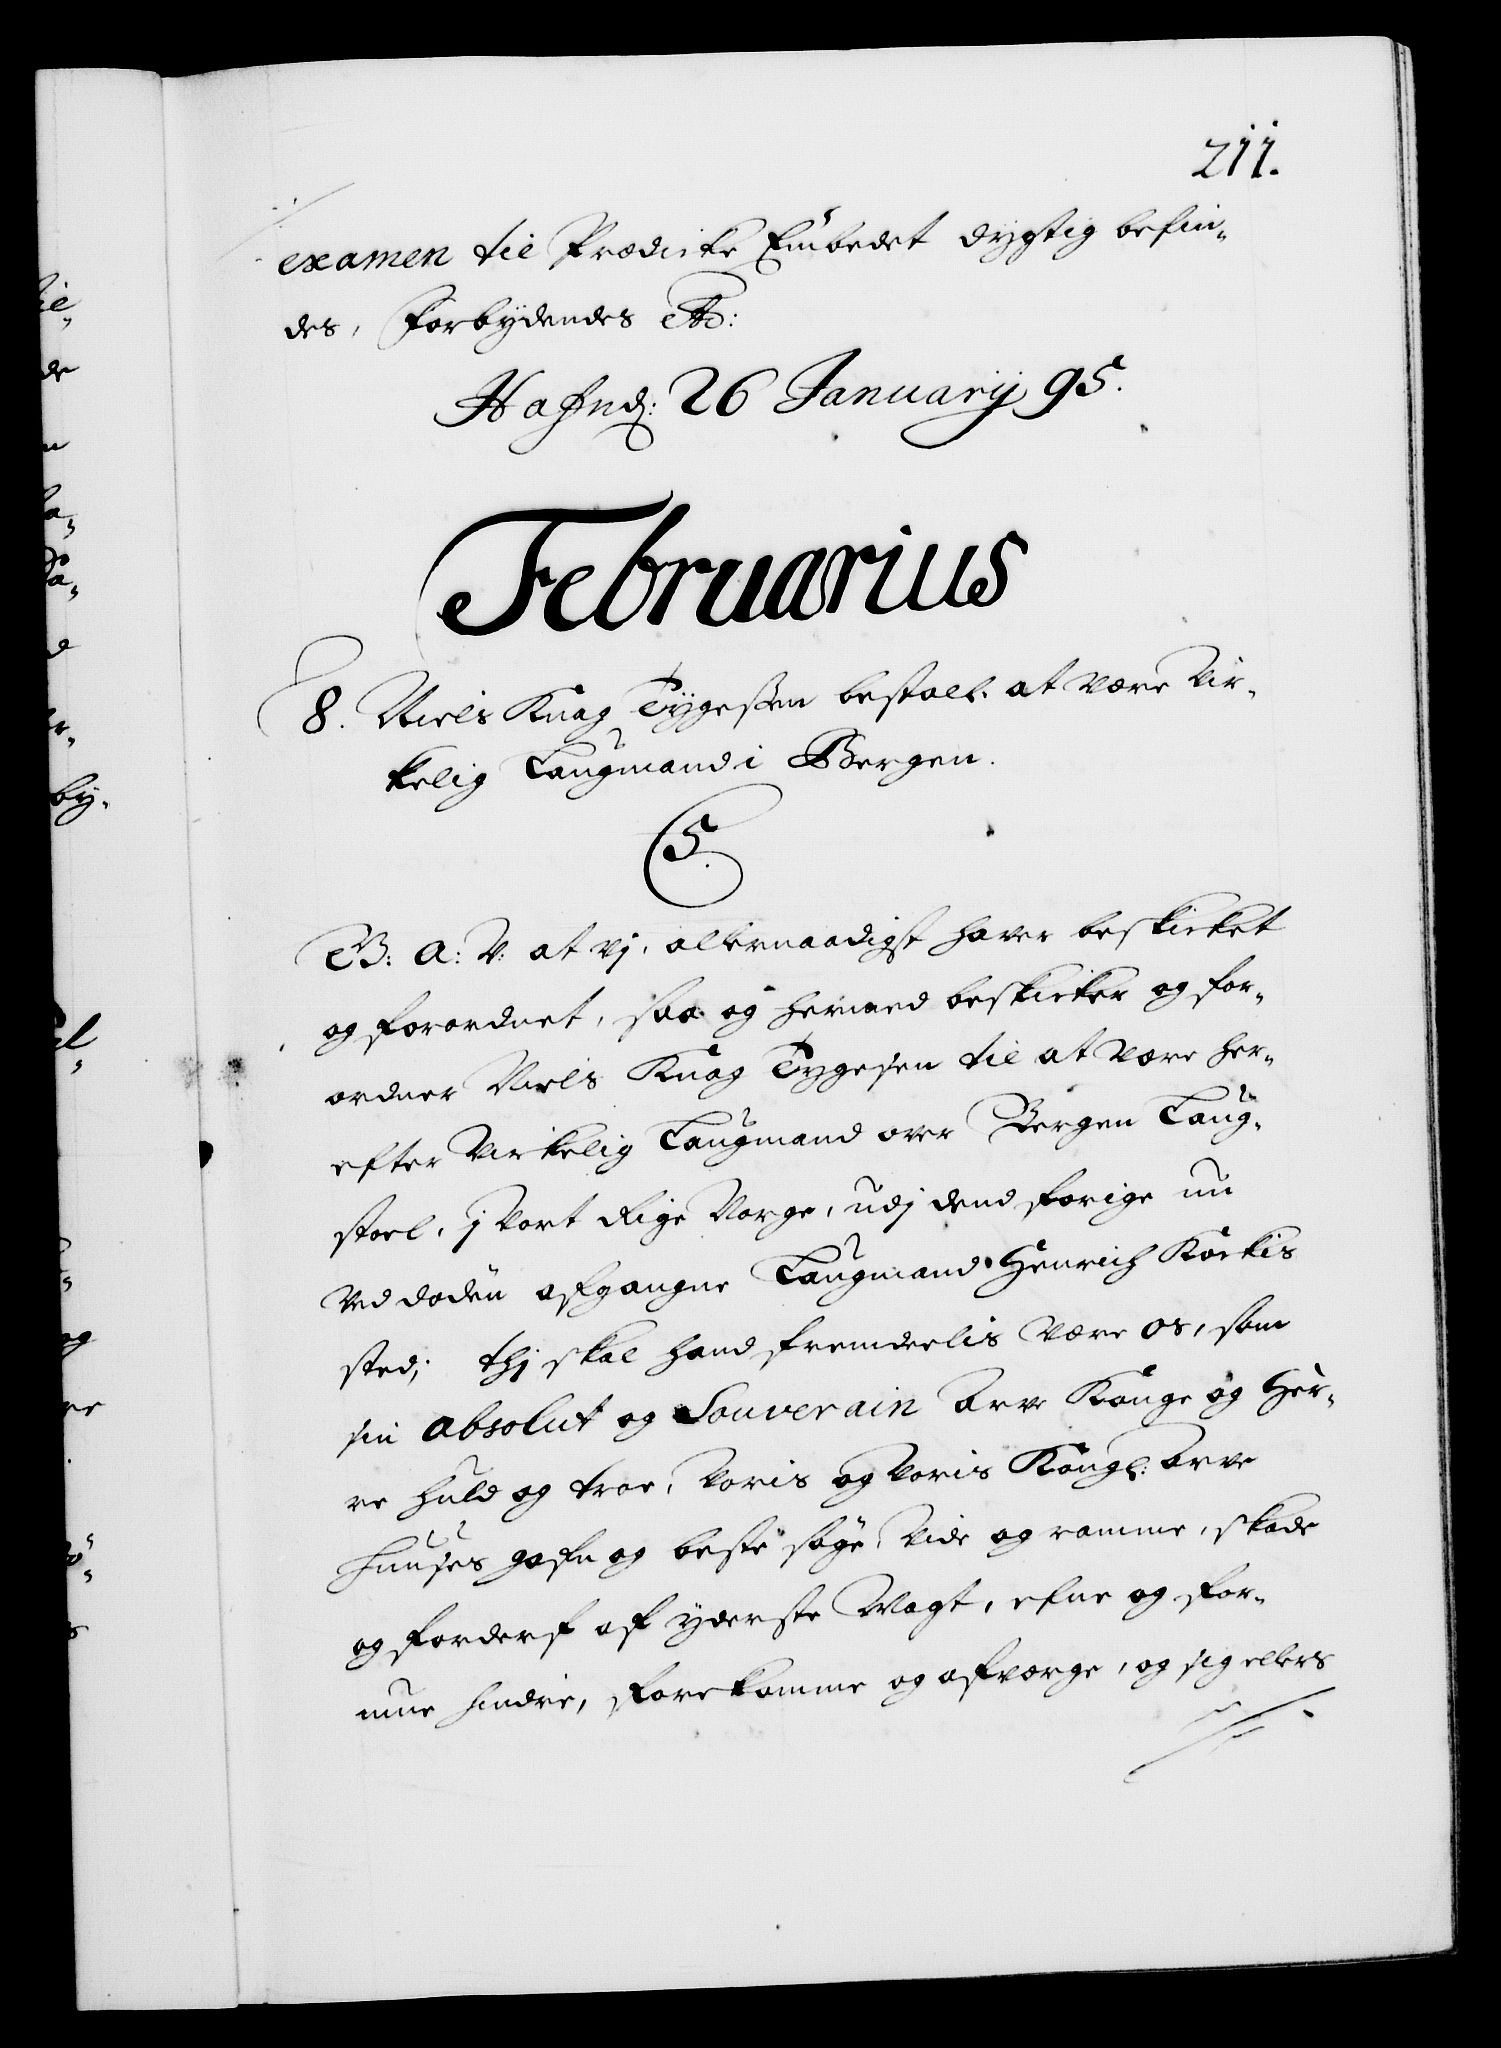 211.
examen til Prædicke Embedet dygtig befin-
des, Forbydendes etc:
Hafnd: 26 Januarij 95.
Februarius
8. Niels Knag Tygeßen bestall. at være Vir-
kelig Laugmand i Bergen.
C5.
G: A: V: at vj, allernaadigst haver beskicket
og forordnet, saa og hermed beskicker og for-
ordner Niels Knag Tygesen til at være her-
efter Virkelig Laugmand over Bergen Laug-
stoel, j Vort Rige Norge, udj dend forige nu
ved døden afgangne Laugmand Henrich
sted; thj skal hand fremdeelis være os, som
sin absolut og Souverain Arve Konge og Her-
re huld og troe, Voris og Voris Kongl: Arve
Huuses gafn og beste søge, Vide og ramme, skade
og forderf af yderste Magt, efne og for-
mue hindre, forekomme og afværge, og sig ellers